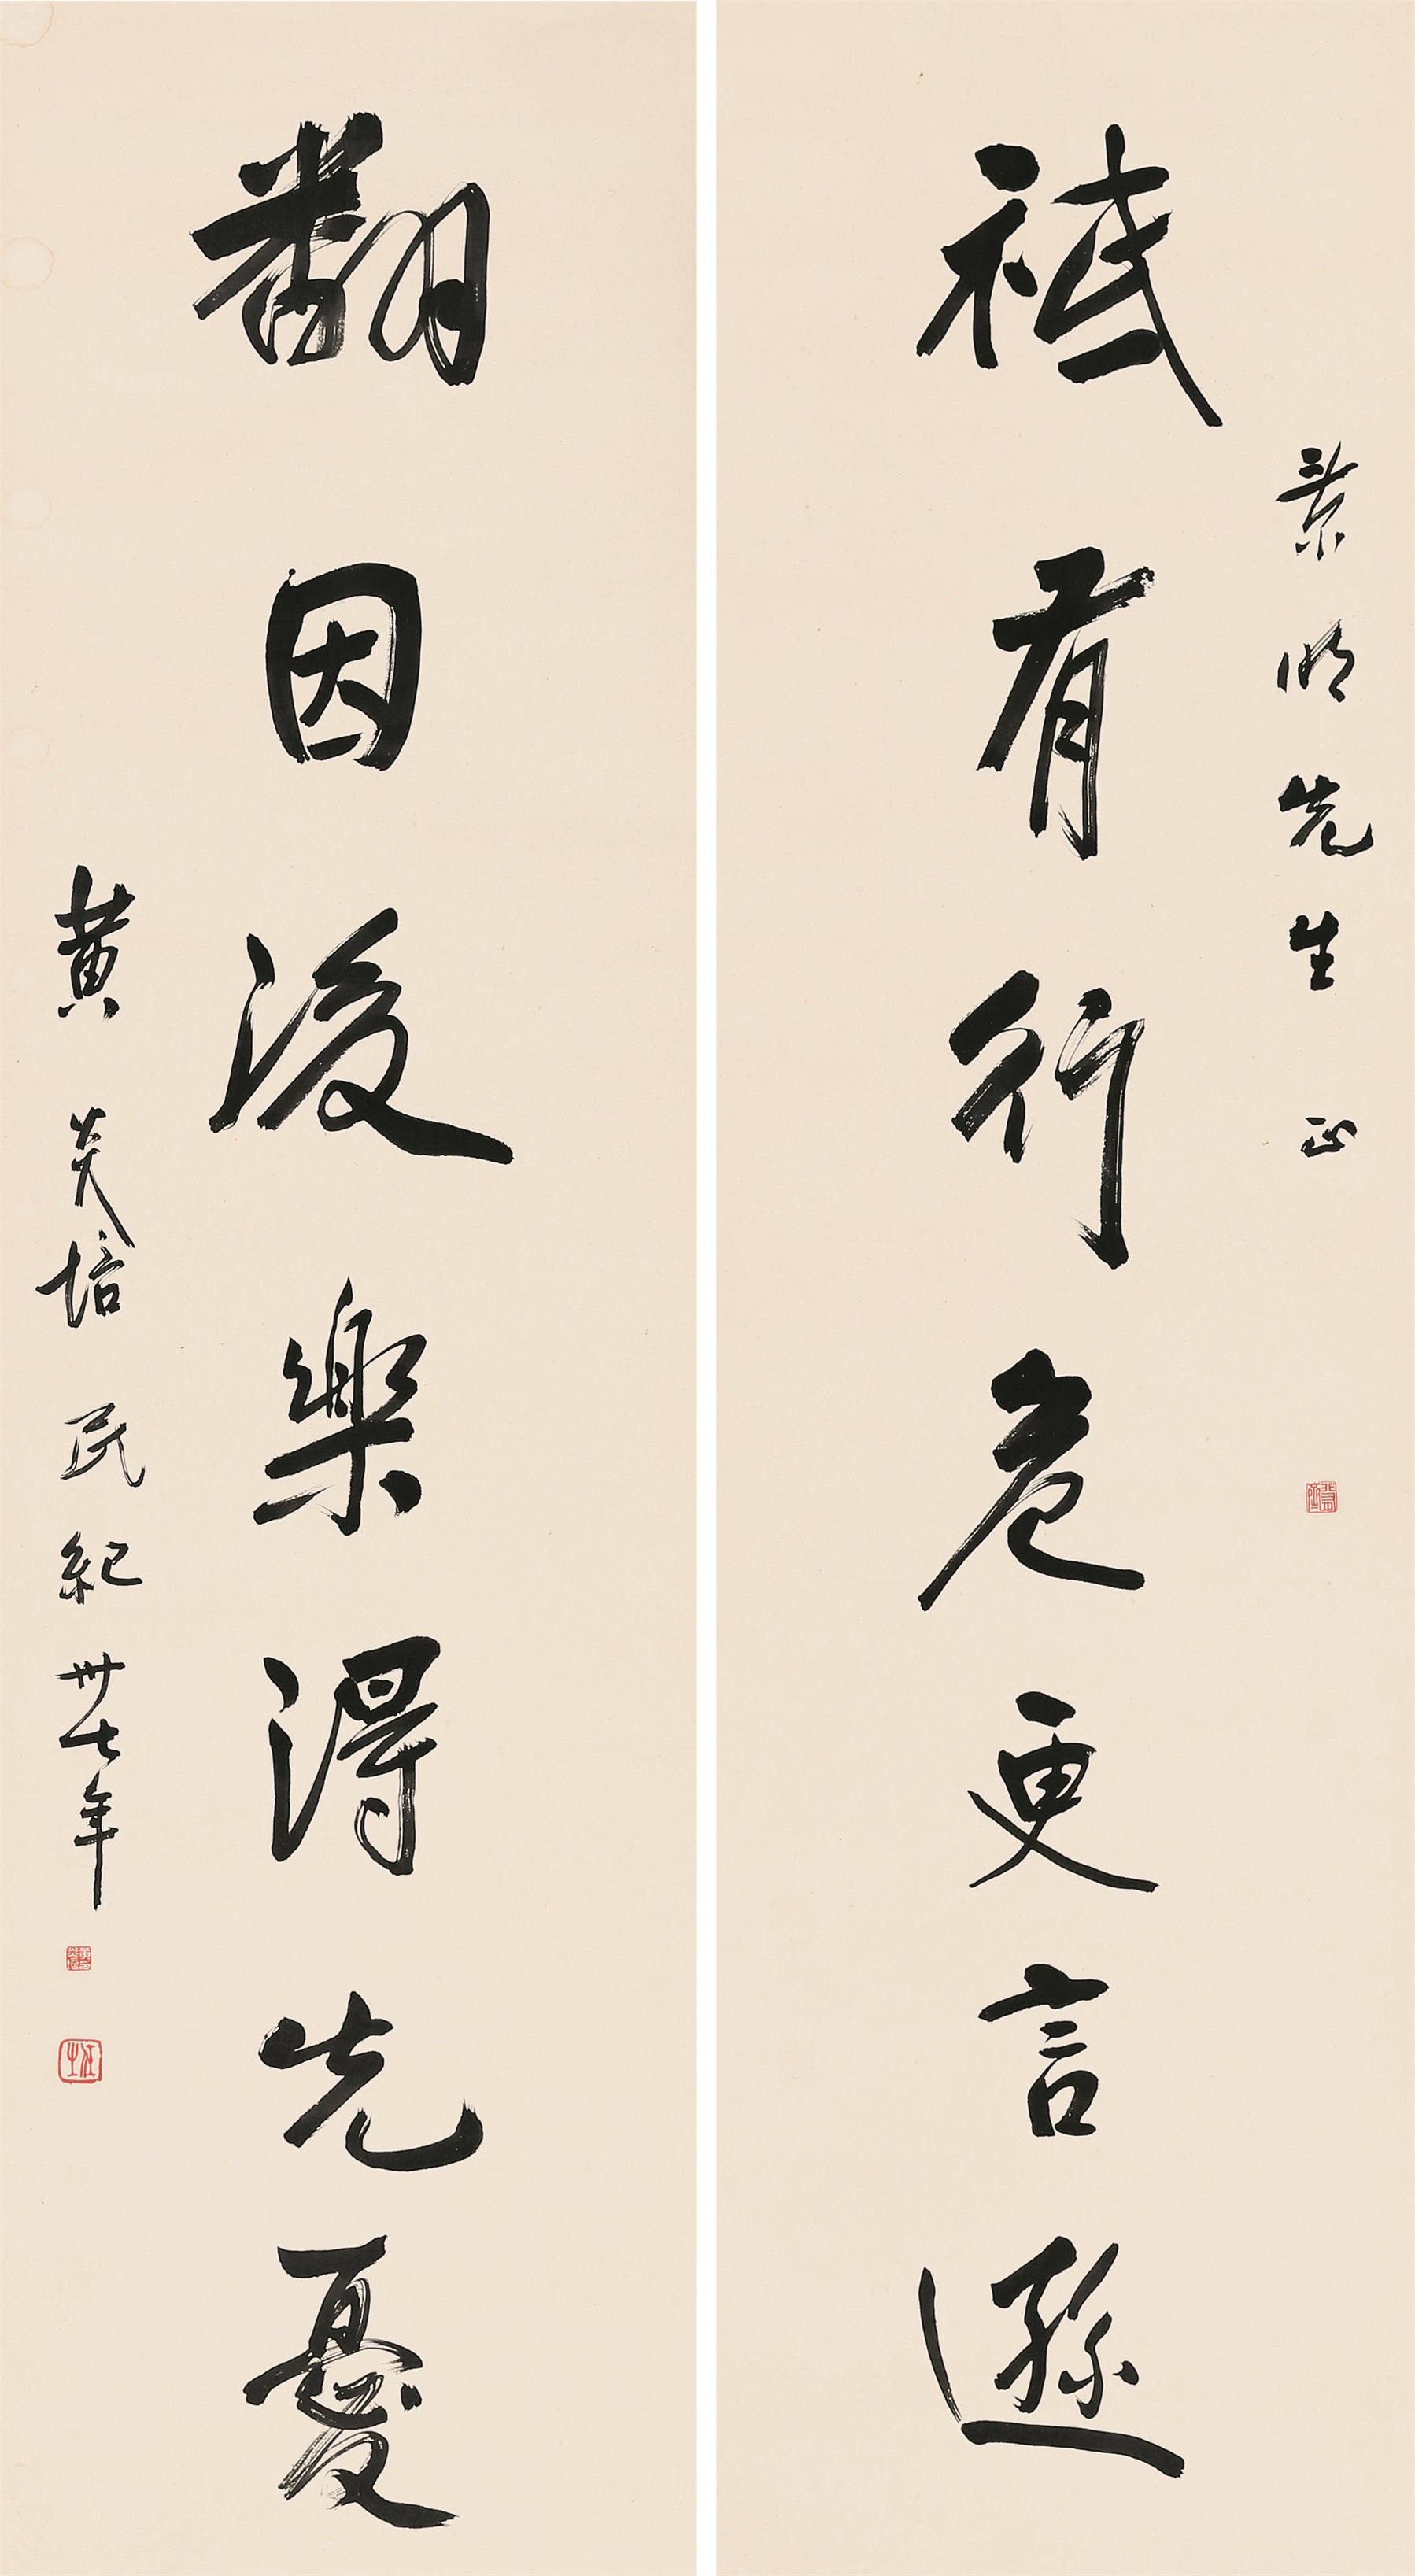 景明先生 正
祇有行危更言遜
翻因後樂得先憂
黃炎培 民紀卅七年